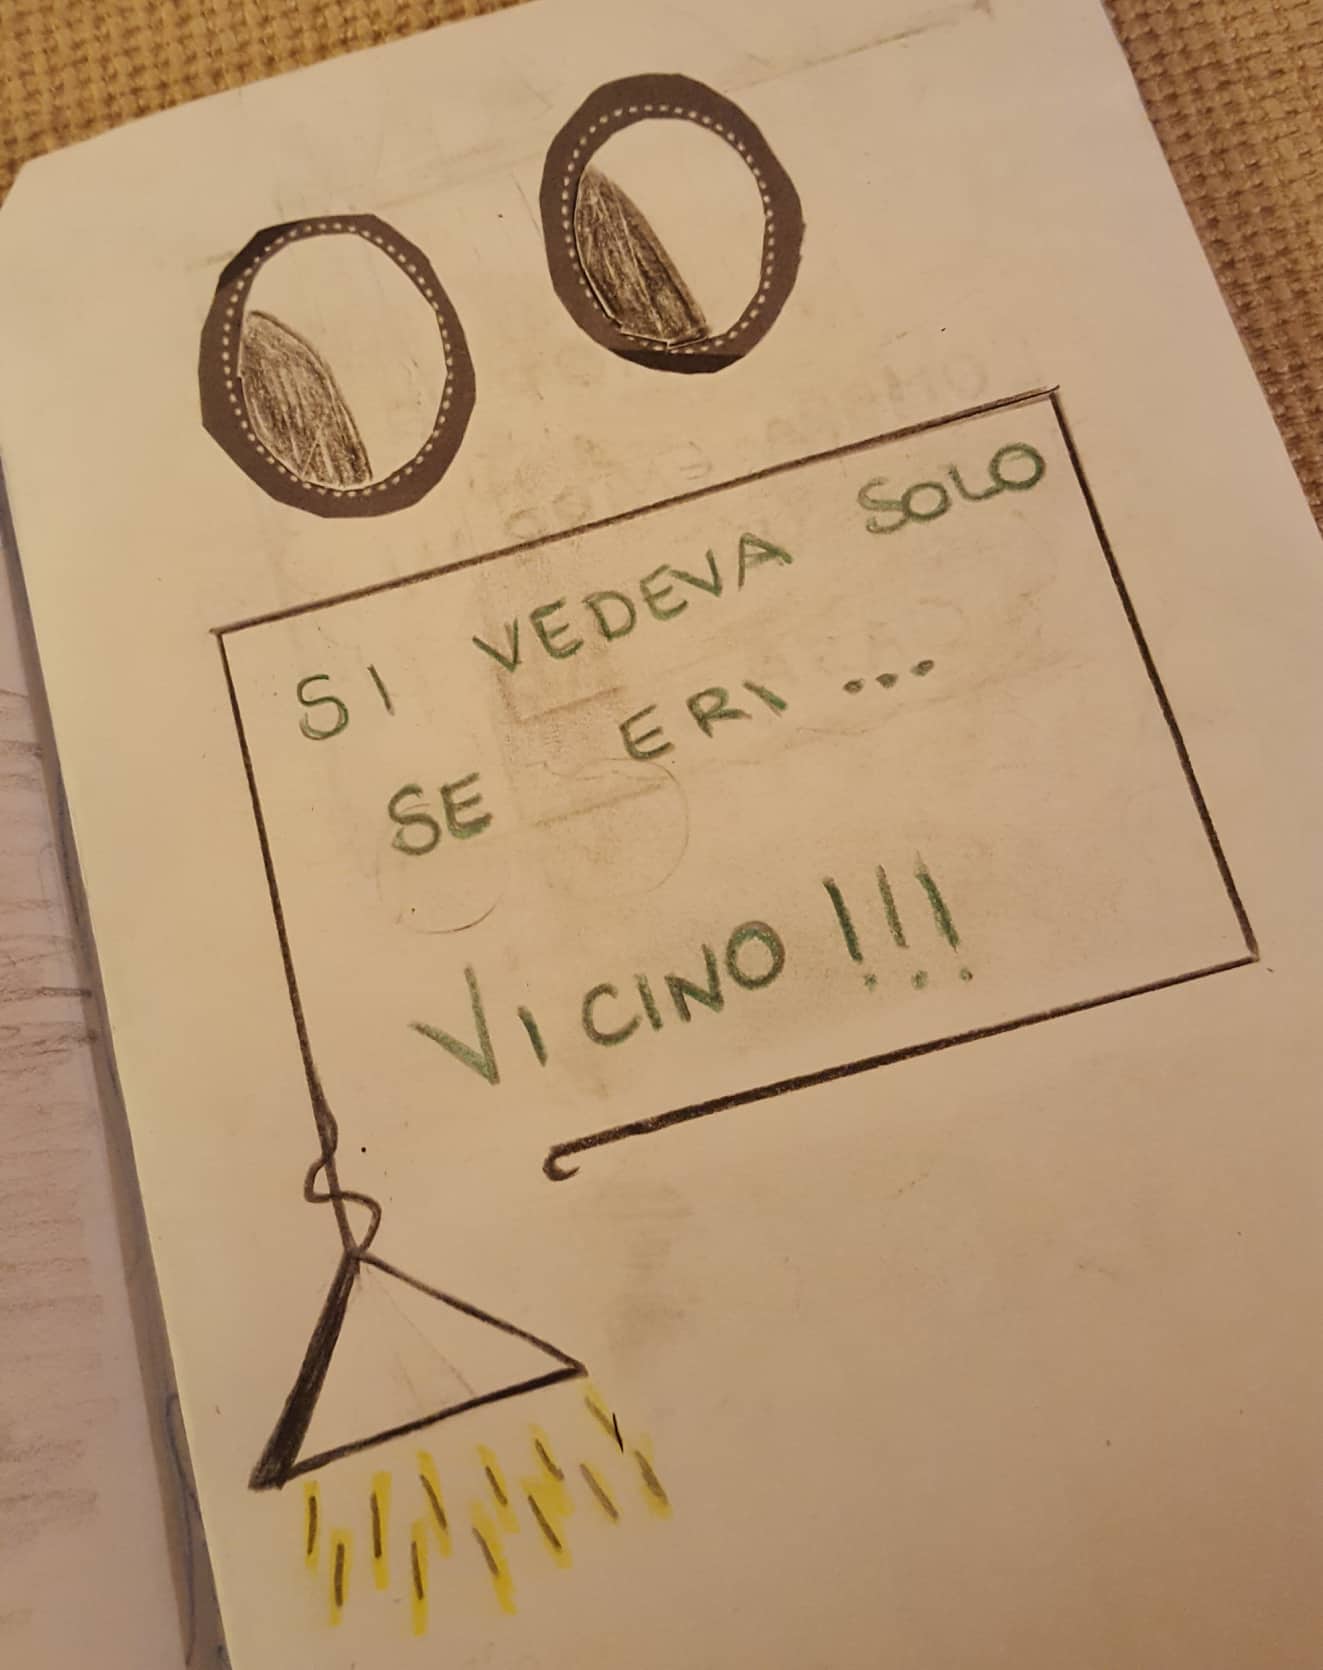 SI VEDEVA SOLO
SE ERI ...
VICINO!!!